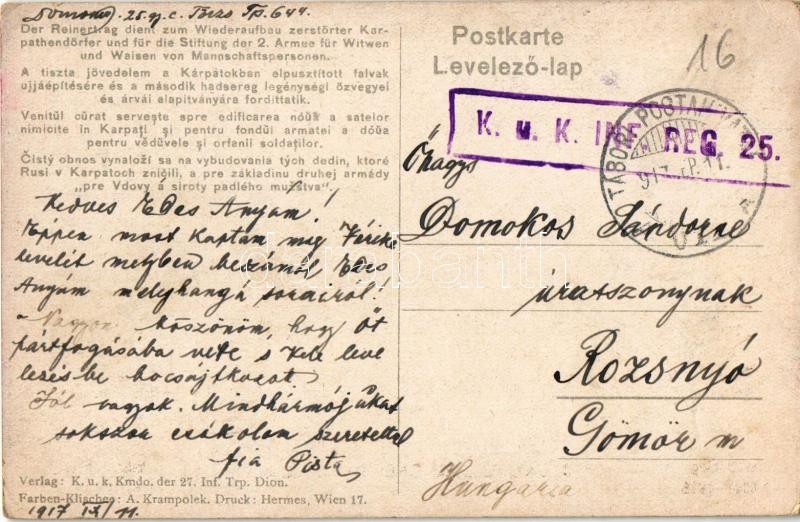 Domokos. 25. gy. e. Tp. 644
Der Reinertrag dient zum Wiederaufbau zerstörter Kar-
pathendörfer und für die Stiftung der 2. Armee für Witwen
und Waisen von Mannschaftspersonen.
A tiszta jövedelem a Kárpátokban elpusztított falvak
ujjáépítésére és a második hadsereg legénységi özvegyei
és árvái alapitványára fordittatik.
Venitŭl cŭrat serveşte spre edificarea nóŭă a satelor
nimicite în Karpaţi şi pentru fondŭl armatei a dóŭa
pentru vĕdŭvele şi orfanii soldaţilor.
Čistý obnos vynaloží sa na vybudovania tých dedín, ktoré
Rusi v Karpatoch zničili, a pre základinu druhej armády
„pre Vdovy á siroty padlého mužstva“
Kedves Edes Anyám!
Éppen most kaptam meg Terike
levelét melyben beszámol Edes
Anyám meleghangú sorairól.
Nagyon köszönöm, hogy őt
pártfogásába vette s vele leve
lezésbe bocsájtkozott
Jól vagyok. Mindhármójukat
sokszor csókolom szeretettel
fia Pista
Verlag: K. u. k. Kmdo. der 27. Inf. Trp. Dion.
Farben-Klischee: A. Krampolek. Druck: Hermes, Wien 17.
1917 IX/11.
Postkarte
Levelező-lap
16
K. u. K. INF. REG. 25.
TÁBORI POSTAHIVATAL
917
Őnagys
Domokos Sándorné
úrasszonynak
Rozsnyó
Gömör m
Hungária
darabanth